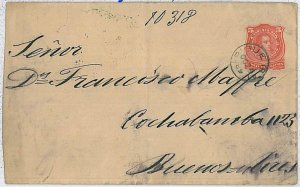 10318
Señor
Dn Francisco Maffre
Cochabamba 1123
Buenos Aires